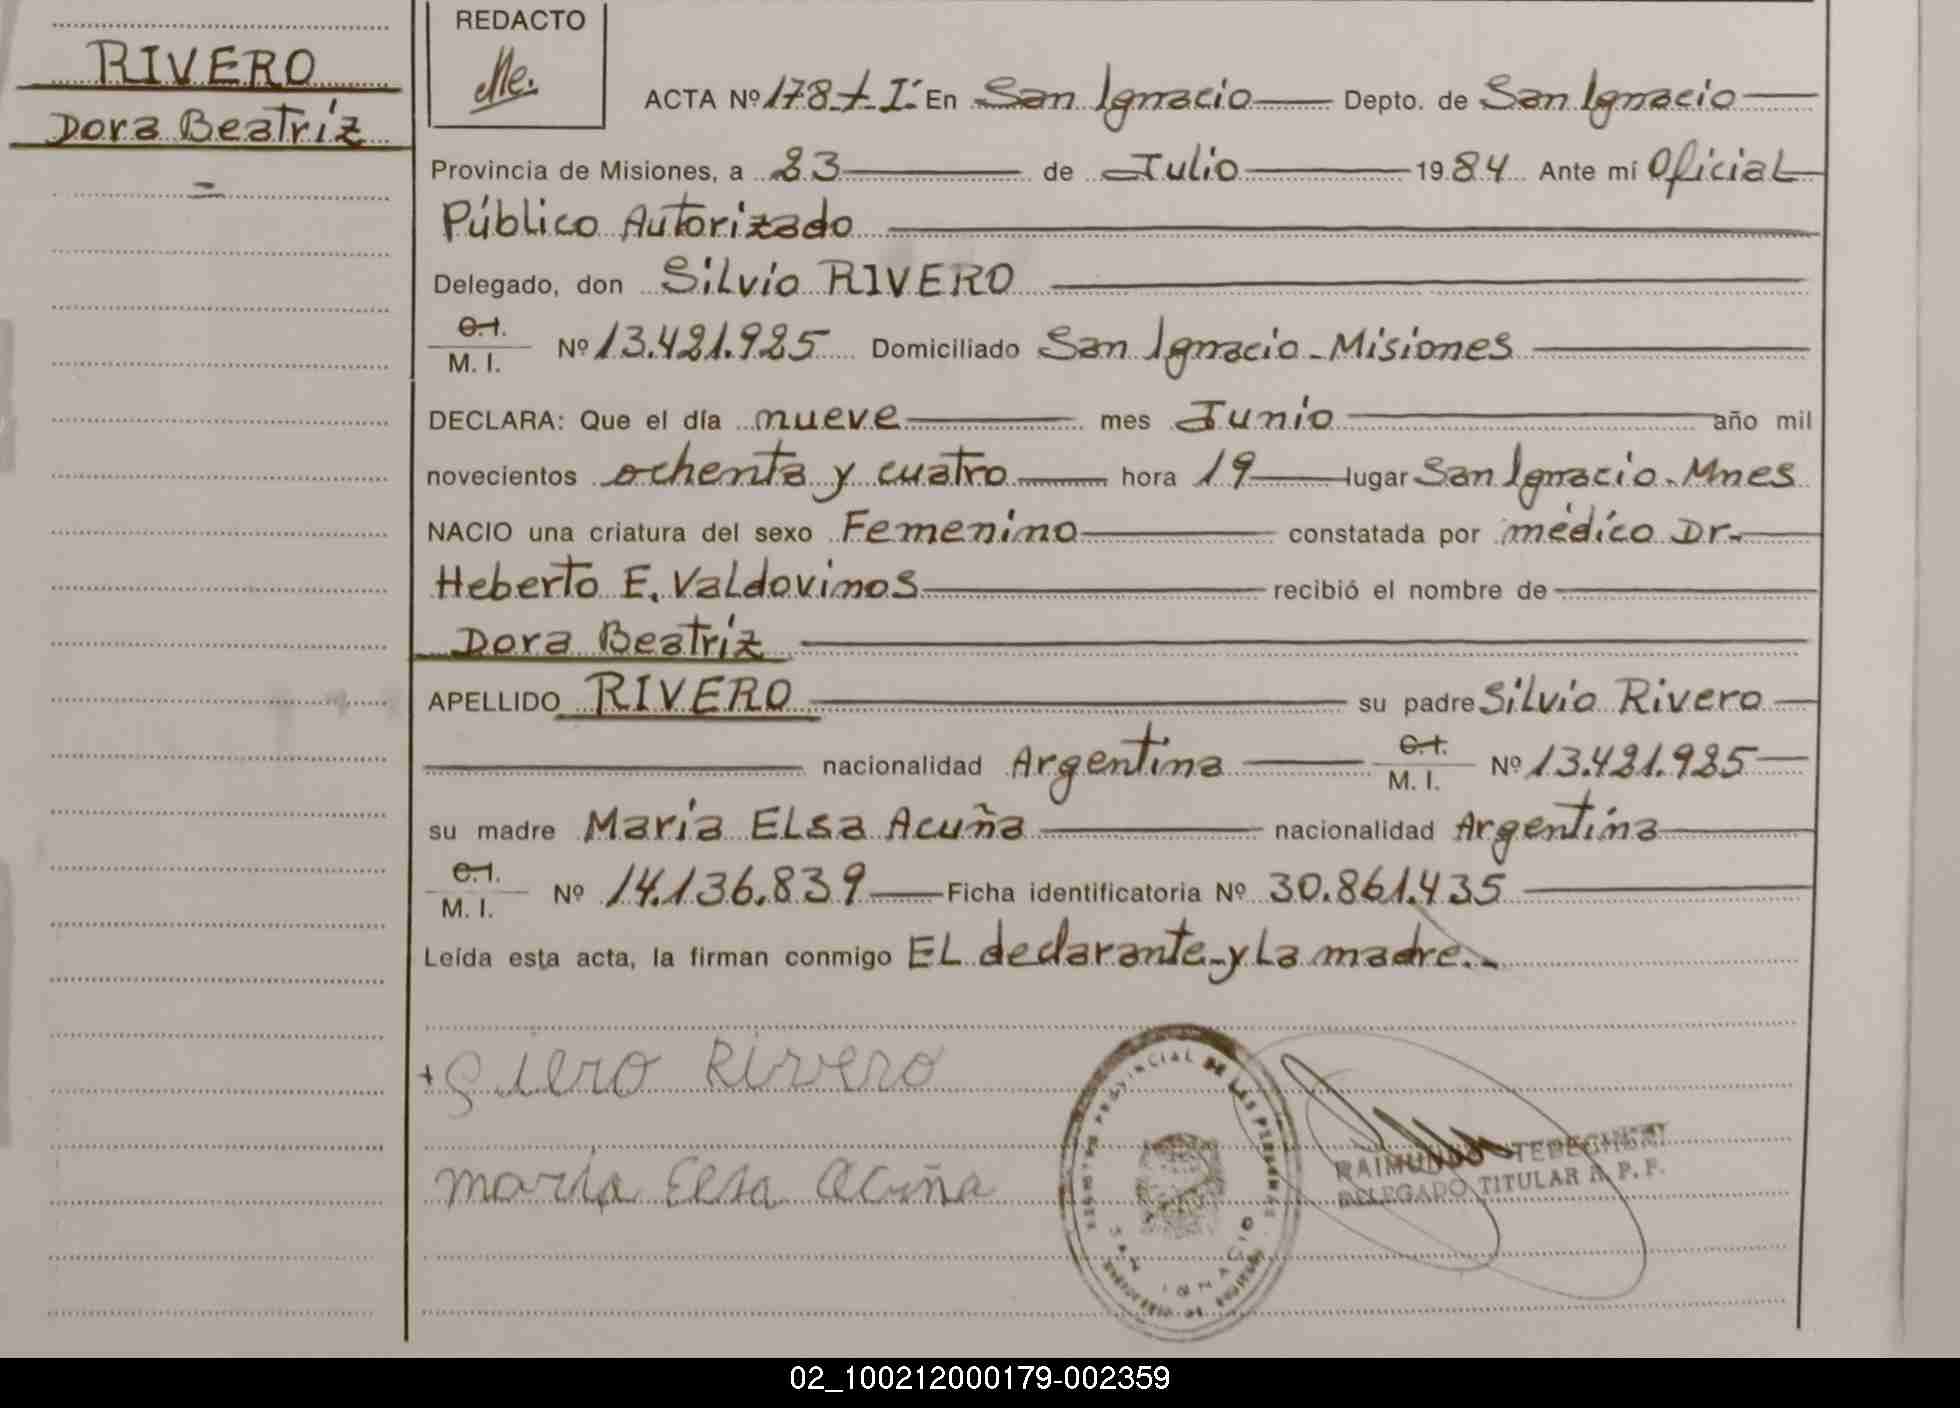 RIVERO
Dora Beatríz
=
REDACTO
ACTA Nº 178 - T. I: En San Ignacio Depto. de San Ignacio
Provincia de Misiones, a 23 de Julio 1984 Ante mí Oficial
Público Autorizado
Delegado, don Silvio RIVERO
C.I.
M. I. Nº 13.421.925 Domiciliado San Ignacio - Misiones
DECLARA: Que el día nueve mes Junio año mil
novecientos ochenta y cuatro hora 19 lugar San Ignacio. Mnes
NACIO una criatura del sexo Femenino constatada por médico Dr.
Heberto E. Valdovinos recibió el nombre de
Dora Beatríz
APELLIDO RIVERO su padre Silvio Rivero
nacionalidad Argentina C.I. M. I. Nº 13.421.925
su madre María Elsa Acuña nacionalidad Argentina
C.I.
M. I. Nº 14.136.839 Ficha identificatoria Nº 30.861.435
Leída esta acta, la firman conmigo El declarante - y La madre. -
Rivero
maría Elsa acuña
REGISTRO PROVINCIAL DE LAS PERSONAS
SAN IGNACIO
RAIMUNDO
DELEGADO TITULAR R. P. P.
02_100212000179-002359